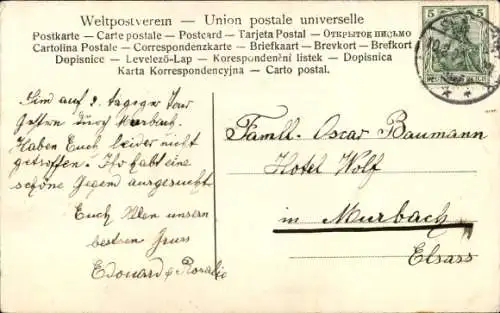 Weltpostverein — Union postale universelle
Postkarte — Carte postale — Postcard — Tarjeta Postal — Открытое письмо
Cartolina Postale — Correspondenzkarte — Briefkaart — Brevkort — Brefkort
Dopisnice — Levelező-Lap — Korespondenční listek — Dopisnica
Karta Korrespondencyjna — Carto postal.
5 5
Sind auf 2. tagiger Tour
Gestern durch Murbach.
Haben Euch leider nicht
getroffen. Ihr habt eine
schöne Gegend ausgesucht.
Euch Allen unsern
besten Gruss
Edouard & Rosalie
Famll. Oscar Baumann
Hotel Wolf
in Murbach
Elsass